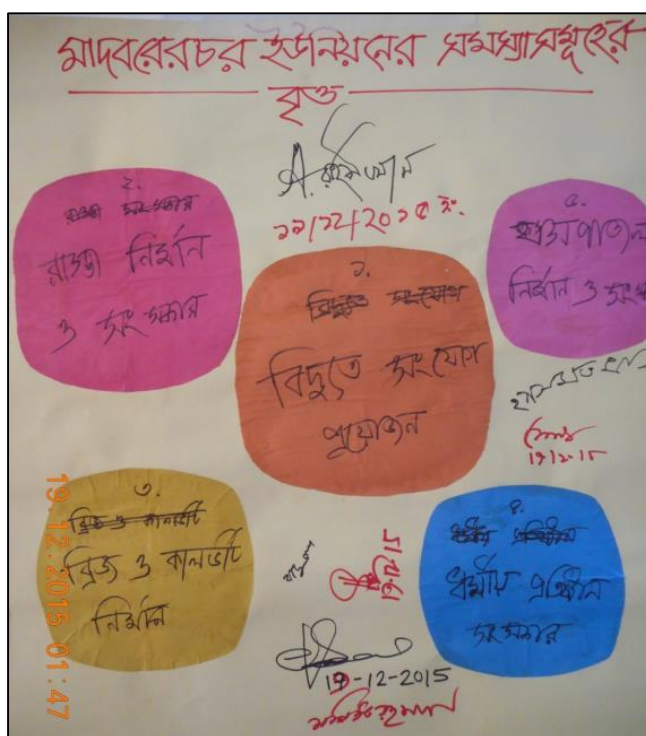 মাদবরেরচর ইউনিয়নের সমস্যাসমূহের
বৃত্ত
১৯/১২/২০১৫ ইং
২.
রাস্তা সংস্কার
রাস্তা নির্মান
ও সংস্কার
১.
বিদ্যুত সংযোগ
বিদ্যুত সংযোগ
প্রয়োজন
৫.
নির্মান ও
19-12-15
৩.
ব্রিজ ও কালভার্ট
ব্রিজ ও কালভার্ট
নির্মান
৪.
ধর্মীয় প্রতিষ্ঠান
ধর্মীয় প্রতিষ্ঠান
সংস্কার
19-12-2015
19.12.2015 01:47